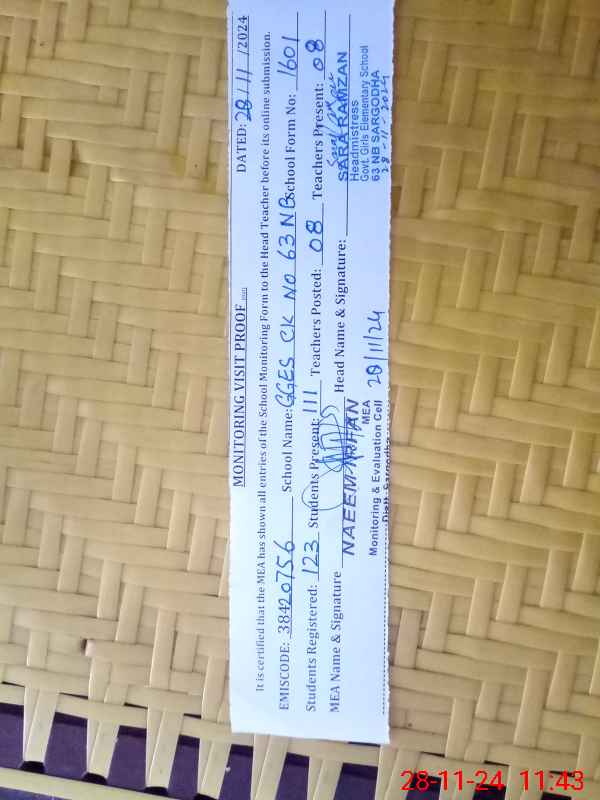 MONITORING VISIT PROOF DATED: 28/11/2024
It is certified that the MEA has shown all entries of the School Monitoring Form to the Head Teacher before its online submission.
EMISCODE: 38420756 School Name: GGES CK NO 63 NB School Form No: 1601
Students Registered: 123 Students Present: 111 Teachers Posted: 08 Teachers Present: 08
MEA Name & Signature Head Name & Signature:
NAEEM KHAN
MEA
Monitoring & Evaluation Cell
Distt. Sargodha
28/11/24
SARA RAMZAN
Headmistress
Govt. Girls Elementary School
63 NB SARGODHA
28-11-2024
28-11-24 11:43